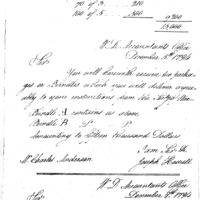 90 of 3 . . 210
100 of 5 . . 500
9200
15,000
W. D. Accountants Office
December 5th 1794
Sir
You will herewith receive two packa-
ges or Bundles which you will deliver agree-
ably to your instructions from
Bundle A contains as above
Bundle B
Amounting to fifteen thousand Dollars
I am Sir &c
Mr Charles Anderson Joseph Howell
W. D. Accountants Office
December 1794
Sir